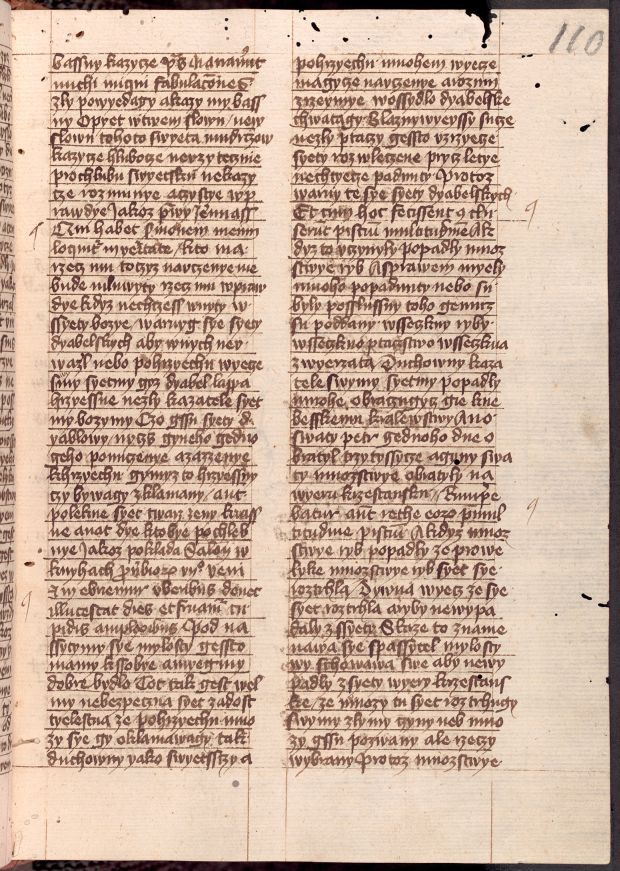 110
bassny kazycze ps Narraverunt
michi iniqui fabulaciones
zly powyedagy a kazy my bass
ny Opyet w trzem slown / new
slown tohoto swyeta mudrzow
kazycze hlubocze nerzytecznie
pro chlubu swyetsku nekazy
cze rozmnye a czystye w p
rawdye Jakoz prwy Jemass
Qui habet sermonem meum
loquatur in veritate / kto ma
rzecz mu toczyz nauczenye ne
bude mluwyty rzeczmi w praw
dye kdyz nechczess wnyty w
ssyety bozye waruyg sye syety
dyabelskych aby wnych ner
wazl nebo pohrzyechu wyecze
smy syetmy gyz dyabel lappa
hrzyessne nezly kazatele syet
my bozymy Czo gssu syety di
yablowy nyczs gyneho gedno
geho ponuczenye azazzenye
khrzyechu gymyz to hrzyessny
czy bywagy zklamany aut
polekne syet twarz zeny krass
ne anat dye ktobye pochleb
nye Jakoz poklada Salon w
knyhach prverbiorum veni
Inebriemur vberibus donec
illucescat dies et fruamur cu
pidis amplexibus Pod na
ssytymy sye mylosty gessto
mamy kssobye a uregmy
dobre bydlo Tot tak gest wel
my nebezpeczna syet zadost
tyelestna ze pohrzyechu mno
zy sye gy oklamawagy tak
duchowny yako swyetssczy a
pohrzyechu mnohem wyecze
magycze nauczenye a rozum
zrzeymye wossydlo dyabelske
chwatagy Blaznywyeyssy sucze
nezly ptaczy gessto vzrzycze
syety rozwleczene prycz letye
nechtyecze padnuty Protoz
waruy te sye syety dyabelskych
Et cum hoc fecissent conclu
serut pisciu multitudine Ak
dyz to vczynyly popadly mnoz
stwye ryb A sprawem myely
mnoho popadnuty nebo su
byly posslussny toho gemuz
su poddany wsseczkny ryby
wsseczkno ptaczstwo wsseczkna
zwyerzata Duchowny kaza
tele swymy syetmy popadly
mnohe obraczugycz gie kne
besskemu kralewstwy A no
swaty petr gednoho dne o
bratyl trzy tyssycze a gyny swa
ty mnozstwye obratyly na
wyeru krzestansku Rumpe
batur aut rethe eorum pre mul
titudine pisciu A kdyz mnoz
stwye ryb popadly ze prowe
lyke mnozstwye ryb syet sye
roztrhla Dywna wyecz ze sye
syet roztrhla a ryby newypa
daly zssyety Skrze to zname
nawa sye spassytel mylosty
wy schowawa swe aby newy
padly zsyety wyery krzestans
ke / ze mnozy tu syet roztrhugy
swymy zlymy czyny neb mno
zy gssu pozwany ale rzeczy
wybrany Protoz mnozstwye